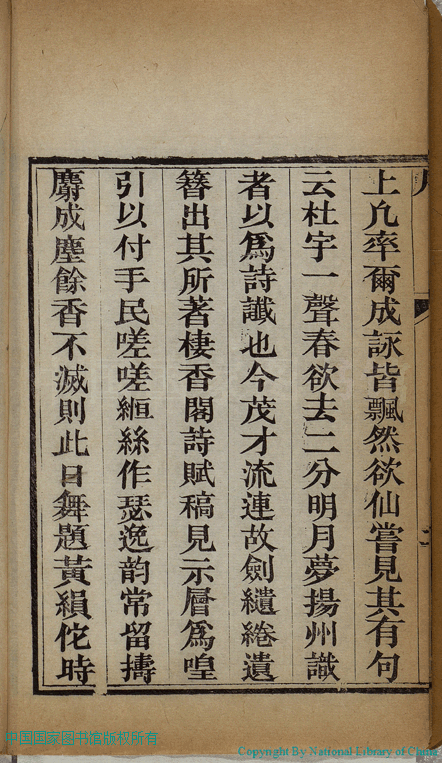 上凡率爾成詠皆飄然欲仙嘗見其有句
云杜宇一聲春欲去二分明月夢揚州識
者以爲詩讖也今茂才流連故劍繾綣遺
簪出其所著棲香閣詩賦稿見示層爲喤
引以付手民嗟嗟縆絲作瑟逸韵常留擣
麝成塵餘香不滅則此日舞題黃絹佗時
中国国家图书馆版权所有
Copyright By National Library of China